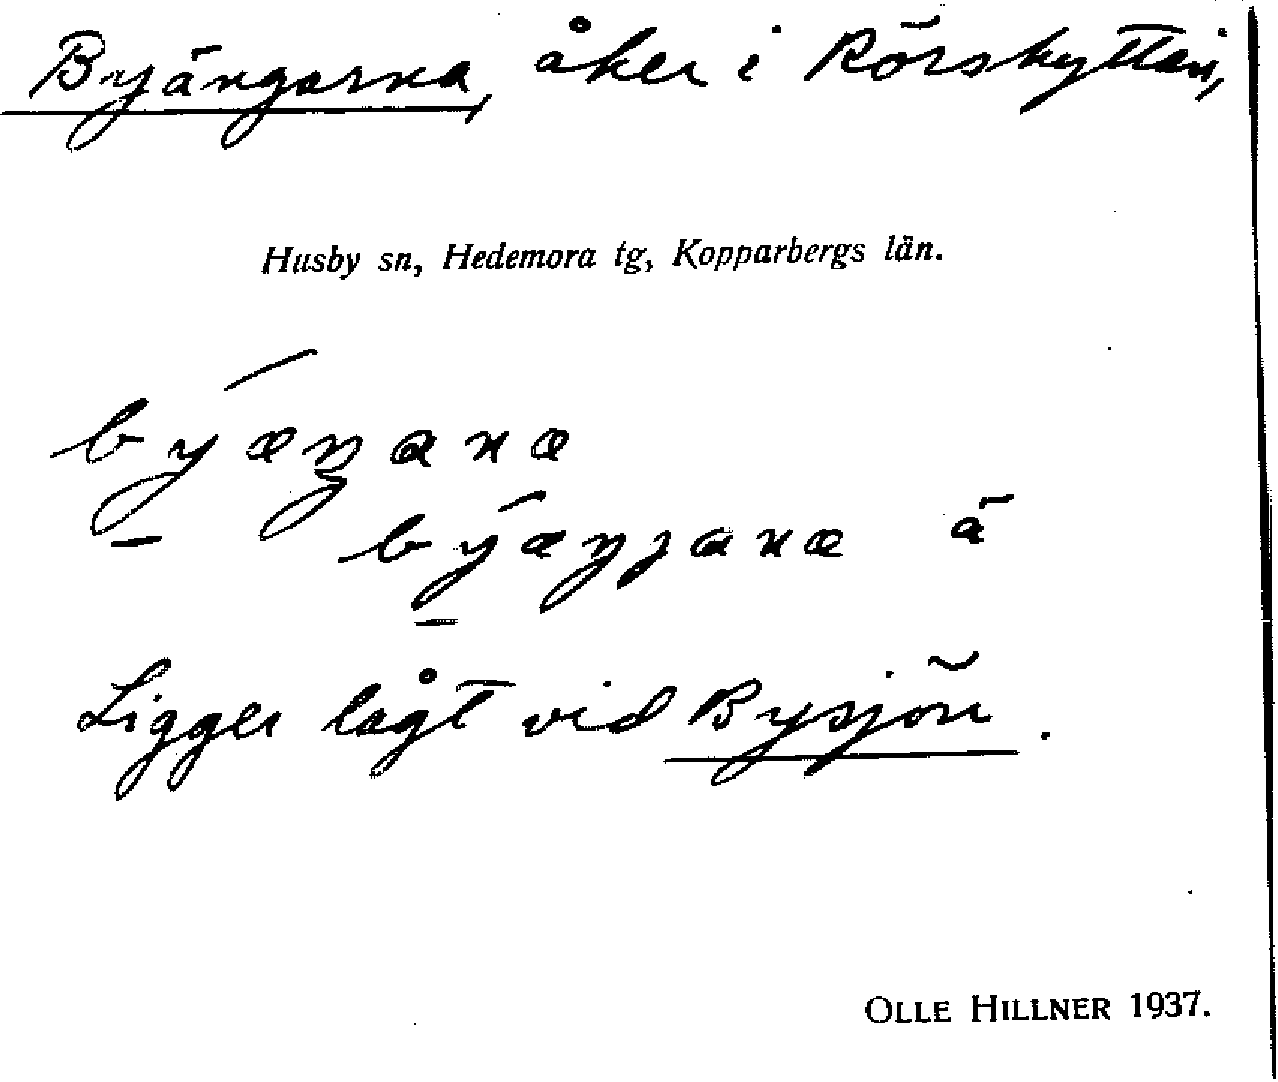 Byängarna, åker i Rörshyttan,
Husby sn, Hedemora tg, Kopparbergs län.
byæŋana
byæŋɡana ä
Ligger lågt vid Bysjön.
OLLE HILLNER 1937.